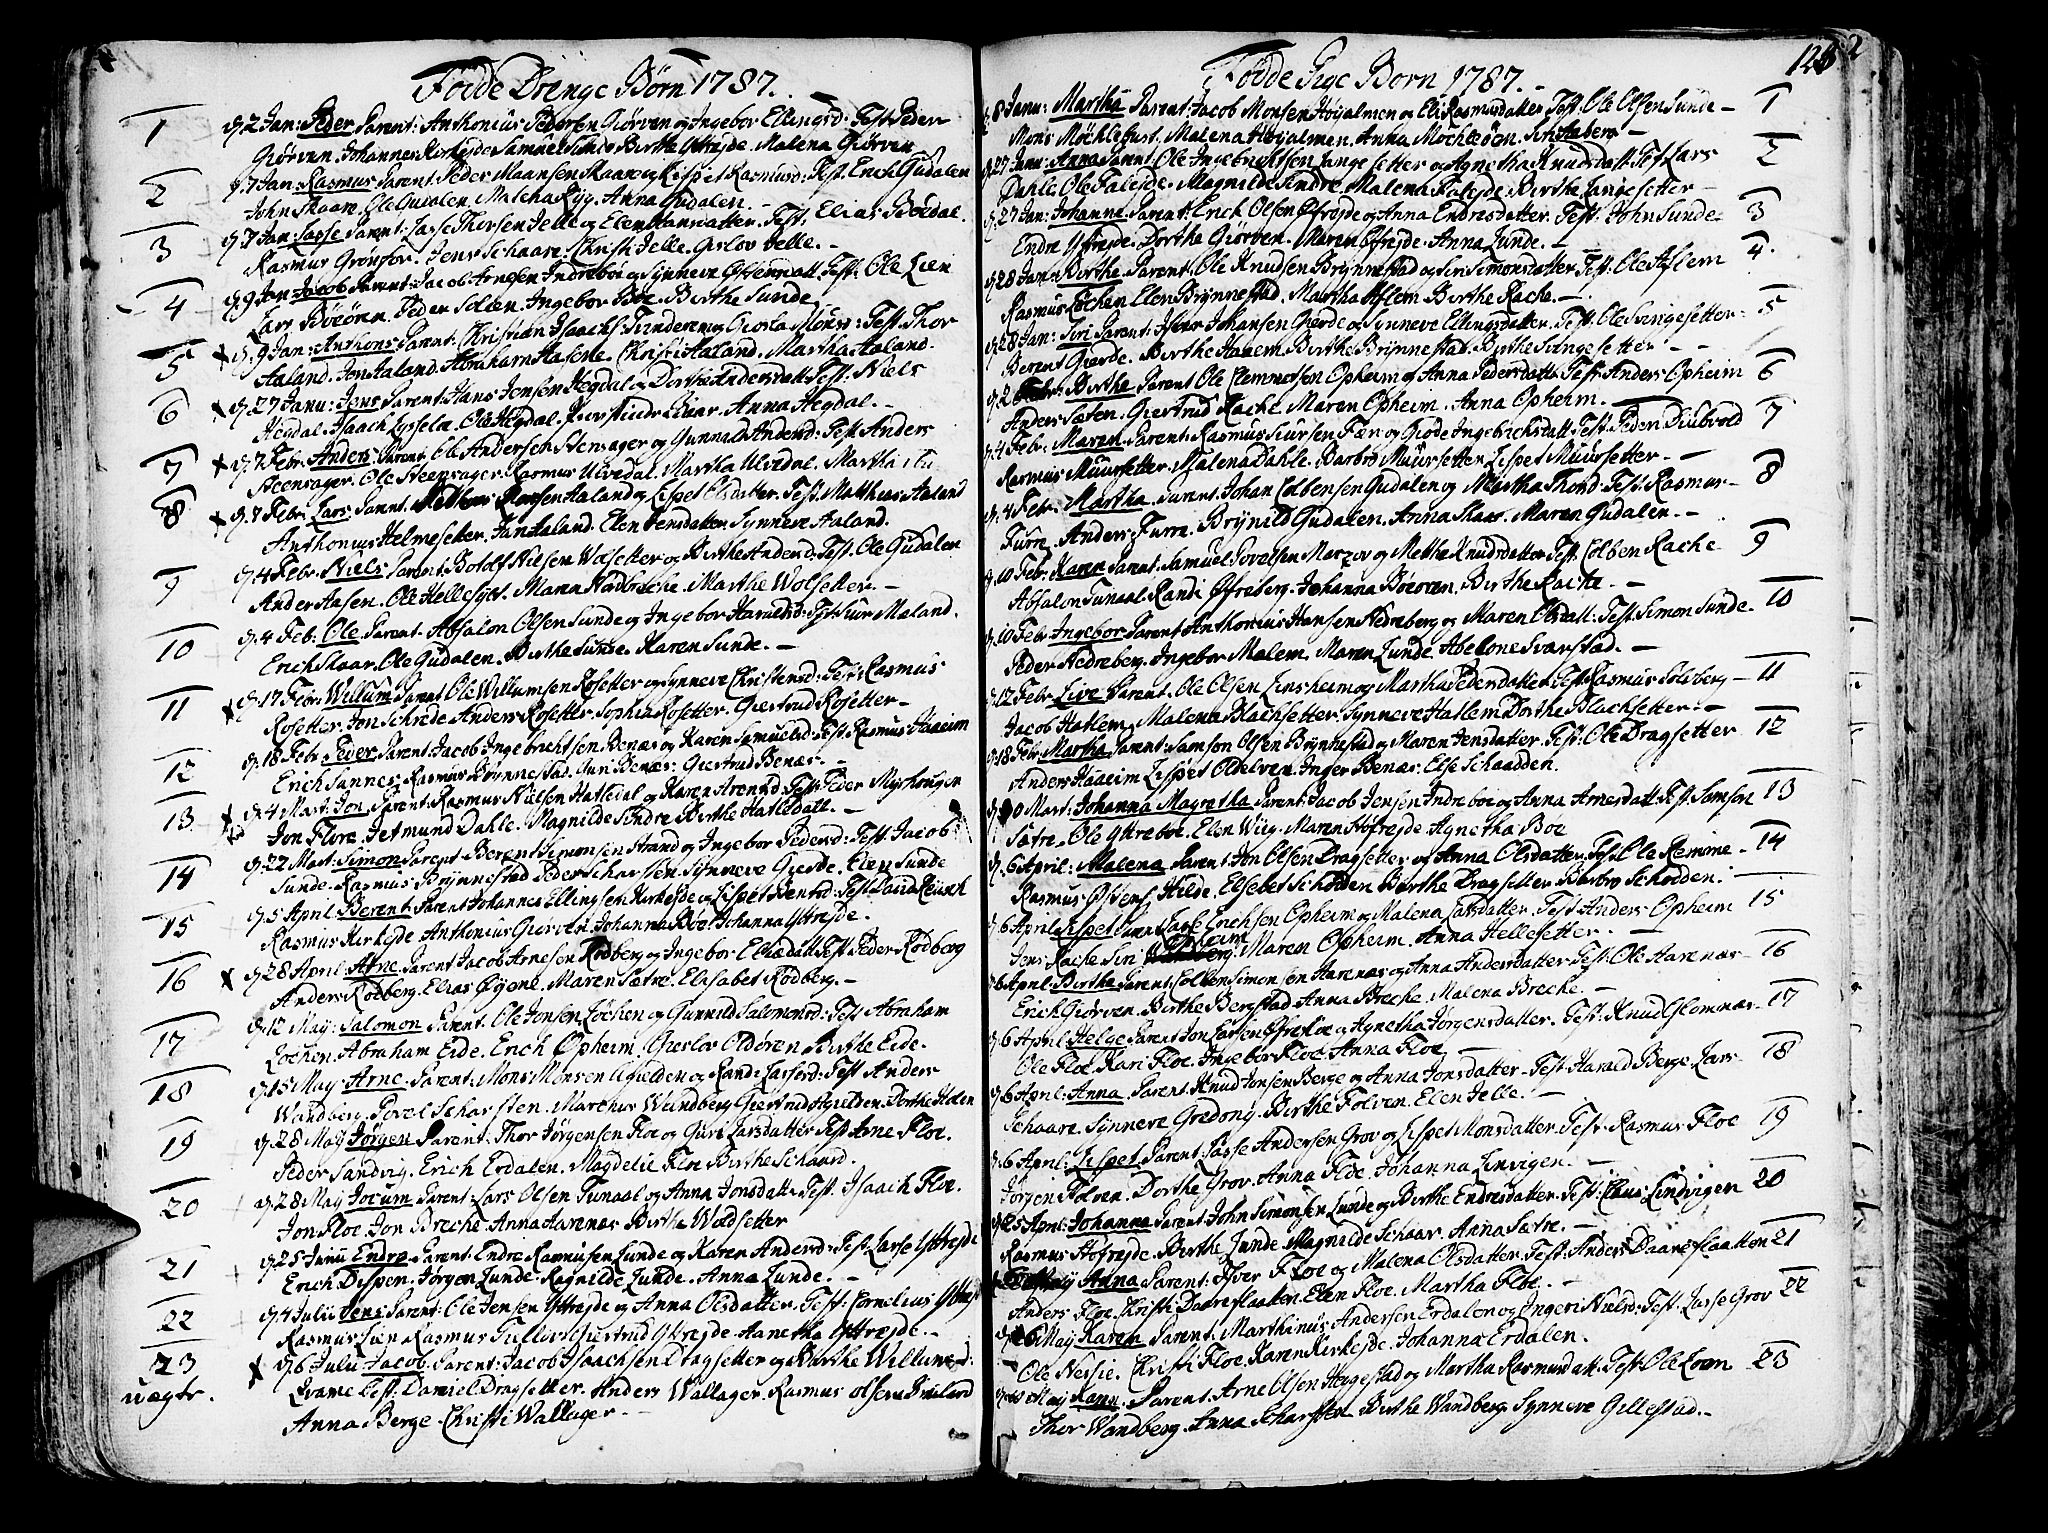 Fødde Drenge Børn 1787.
1 d. 2 Jan: Peder Parent: Anthonius Pedersen Giørven og Ingebor Ellingsd: Test Peder
Giørven. Johannes Kirkeyde Samuel Sunde Birthe Yttrejde. Malena Giørven
2 d. 7 Jan: Rasmus Parent: Peder Maansen Skaare og Lispet Rasmusd: Test. Erich Gudalen
John Skaare. Ole Gudalen. Anna Gudalen.
3 d. 7 Jan: Lasse Parent: Lasse Thorsen Jelle og Elen Hansdatter. Test. Elias Bødal.
Rasmus Gronfor. Jens Schaare. Christi Jelle. Gerlov Jelle.
4 d. 9 Jan Jacob Parent: Jacob Arnesen Indreboe og Synneve Test: Ole Lien
Lars Peder Ingebor Boe. Birthe Sunde
5 d. 9 Jan: Anthons Parent: Christian Isaachs: og Test. Thor
Aaland. Jon Aaland. Abraham Aasene. Christi Aaland. Martha Aaland.
6 d. 27 Janu: Jens Parent: Hans Jensen Hegdal og Dorthe Andersdatt Test: Niels
Hegdal. Isaach Ole Hegdal. Anna Hegdal.
7 d. 7 Febr: Anders Parent Ole Andersen Stensager og Gunnald Andersd: Test Anders
Steensager. Ole Steensager. Rasmus Ulvedal. Martha Ulvedal. Martha
8 d. 7 Febr. Lars. Parent. Hansen Aaland og Lispet Olsdatter. Test. Matthias Aaland
Anthonius Helmesetter. Jan Aaland. Elen Jensdatter. Synneve Aaland.
9 d. 4 Febr. Niels Parent: Botolf Nielsen og Birthe Andersd: Test. Ole Gudalen
Ander Aasen. Ole Hellesyet. Marthe Wolsetter.
10 d. 4 Feb: Ole. Parent. Absalon Olsen Sunde og Ingebor Haraldsd: Test: Siur Maland.
Erich Skaar. Ole Gudalen. Birthe Sunde. Karen Sunde.
11 d. 17 Febr. Willum Parent Ole Willumsen Rosetter og Synneve Christensd: Test: Rasmus
Rosetter. Jon Schrede Anders Rosetter. Sophia Rosetter. Giertrud Rosetter
12 d. 18 Febr Peder Parent: Jacob Ingebrichtsen Benæs og Karen Samuelsd: Test. Rasmus Haaeim
Erich Sannes. Rasmus Brynnestad. Benæs. Giertrud Benæs.
13 d. 4 Mart. Jon. Parent: Rasmus Nielsen Hatledal og Karen Arensd: Test: Peder Myrhougen
Jon Flore. Jetmund Dahle. Magnilde Sindre Birthe Hatledal
14 d. 22 Mart: Simon Parent Berent Simonsen Strand og Ingebor Pedersd: Test: Jacob
Sunde. Rasmus Brynnestad Peder Scharsten. Synneve Gierde. Elen Sunde
15 d. 5 April Berent Parent Johannes Ellingsen Kirkejde og Lispet Berntsd: Test
Rasmus Kirkejde Anthonius Giørven Johanna Bøe. Johanna Yttrejde.
16 d. 28 April. Arne. Parent Jacob Arnesen Rødberg og Ingebor Test Peder Rødberg
Anders Rødberg. Elias Øyene. Maren Sætre. Elisabet Rødberg.
17 d. 12 May: Salomon Parent: Ole Jonsen Løchen og Gunnild Salomonsd: Test Abraham
Løchen. Abraham Eide. Erich Opheim. Gierlov Oldøren Birthe Eide.
18 d. 15 May. Arne. Parent: Mons Monsen Afielden og Randi Larsesd: Test Anders
Wandberg. Povel Scharsten. Wandberg Giertrud Dorthe Holen
19 d. 28 May Jørgen Parent. Thor Jørgensen Floe og Guri Larsdatter Test Arne Floe.
Peder Sandvig. Erich Erdalen. Magdeli Floe Birthe Schaard.
20 d. 28 May Jocum. Parent: Lars Olsen Tunaal og Anna Jonsdatt. Test. Isaach Floe.
Jon Floe. Jon Breche. Anna Aarenæs. Birthe Woldsetter
21 d. 25 Junii Endre Parent. Endre Rasmusen Lunde og Karen Andersd: Test: Lasse Yttrejde
Erich Dispen. Jørgen Lunde. Ragnilde Lunde. Anna Lunde.
22 d. 4 Julii Jens. Parent: Ole Jensen Yttrejde og Anna Olsdatter. Test: Cornelius
Rasmus Lien Rasmus Giertrud Yttrejde. Agnetha Yttrejde.
23 d. 6 Julii Jacob. Parent: Jacob Isaachsen Dragsetter og Birthe Willumsd:
uægte. Test: Daniel Dragsetter. Anders Wallager. Rasmus Olsen
Anna Berge. Christi Wallager.
128
Fødde Pige Børn 1787.
d. 8 Janu: Martha Parent: Jacob Monsen Høyalmen og Eli Rasmusdatter Test: Ole Olsen Sunde 1
Mons Møchlebust. Malena Høyalmen. Anna
d. 27 Janu: Anna Parent: Ole Ingebrichtsen Langesetter og Agnetha Knudsdatt. Test Lars 2
Dahle Ole Faleyde. Magnilde Sindre. Malena Faleyde. Birthe Langesetter
d. 27 Jan: Johanna. Parent: Erich Olsen Øfrejde og Anna Endresdatter. Test: John Sunde 3
Endre Yttrejde. Dorthe Giørven. Maren Øfrejde. Anna Lunde.
d. 28 Janu Birthe. Parent: Ole Knudsen Brynnestad og Siri Simonsdatter Test: Ole Aslem 4.
Rasmus Løchen Elen Brynnestad. Martha Aslem Birthe Rache.
d. 28 Jan: Siri Parent: Iver Johansen Gierde og Synneve Ellingsdatter. Test: Ole Svingesetter 5
Berent Gierde. Birthe Haaem. Birthe Brynnestad. Birthe Svingesetter
d. 2 Febr: Birthe Parent Ole Clemmetsen Opheim og Anna Pedersdatt. Test: Anders Opheim 6
Anders Giertrud Rache Maren Opheim. Anna Opheim.
d. 4 Febr. Maren. Parent: Rasmus Siursen og Giøde Ingebrichsdatt Test: Peder Diubvold 7
Rasmus Muursetter. Malena Dahle. Barbro Muursetter. Lispet Muursetter.
d. 4 Febr: Martha. Parent: Johan Colbensen Gudalen og Martha Thorsd: Test: Rasmus 8
Furre. Anders Furre. Brynild Gudalen. Anna Skaar. Maren Gudalen.
d. 10 Feb: Karen Parent: Samuel Povelsen og Metthe Knudsdatter. Test: Colben Rache 9
Absalon Tunaal Randi Øfreberg. Johanna Birthe Rache.
d. 10 Febr Ingebor Parent Anthonius Hansen Nedreberg og Maren Olsdatt: Test. Simon Sunde 10
Peder Nedreberg. Ingebor Malem. Maren Lunde. Abelone Svarstad.
d. 12 Febr. Live Parent. Ole Olsen Linsheim og Martha Pedersdatter. Test Rasmus Solsberg 11
Jacob Hatlem. Malena Blachsetter. Synneve Hatlem Dorthe Blachsetter.
d. 18 Febr. Martha Parent: Samson Olsen Brynnestad og Maren Jensdatter. Test: Ole Dragsetter 12
Anders Haaeim Lispet Oldelven. Inger Benæs. Else Schaadden.
10 Mart: Johanna Magretha Parent: Jacob Jensen Indreboe og Anna Arnesdatt Test. Samson 13
Sætre. Ole Yttreboe. Elen Wiig. Maren Høfrejde Agnetha Bøe
d. 6 April: Malena. Parent Jon Olsen Dragsetter og Anna Olsdatter. Test. Ole Remme 14
Rasmus Hilde. Elsebet Schodden Birthe Dragsetter Barbro Schodden.
d. 6 April Lispet Parent Lasse Erichsen Opheim og Malena Larsdatter. Test Anders Opheim 15
Jens Rache Siri Opheim Maren Opheim. Anna Hellesetter.
d. 6 April Birthe Parent: Colben Simonsen Aarenæs og Anna Andersdatter. Test: Ole Aarenæs 16
Erich Giørven. Birthe Bergstad. Anna Breche. Malena Breche.
d. 6 April Helge Parent Jon Larsen og Agnetha Jørgensdatter. Test: Knud Glomnæs 17
Ole Floe. Kari Floe. Ingebor Floe. Anna Floe
d. 6 April. Anna. Parent. Knud Jonsen Berge og Anna Jonsdatter. Test. Harald Berge Lars 18
Schaare. Synneve Gredong. Birthe Folven. Elen Jelle.
d. 6 April: Lispet Parent. Lasse Andersen Grov og Lispet Monsdatter. Test: Rasmus Floe 19
Jørgen Folven. Dorthe Grov. Anna Floe. Johanna Linvigen.
d. 25 April: Johanna Parent John Simonsen Lunde og Birthe Endresdatter. Test: Claus Lindvigen 20
Rasmus Høfrejde. Birthe Lunde Magnilde Schaar. Anna Sætre.
May Anna Parent: Iver Floe og Malena Olsdatter. Test: Anders Daareflaatten 21
Anders Floe. Christi Daareflaaten. Elen Floe. Martha Floe.
May Karen Parent. Marthinus Andersen Erdalen og Ingeri Nielsd: Test. Lasse Grov 22
Ole Nersie. Christi Floe. Karen Kirkejde. Johanna Erdalen.
May Parent. Arne Olsen Heggestad og Martha Rasmusdatt. Test. Ole Loen 23
Thor Wandberg. Anna Scharsten. Birthe Wandberg. Synneve Gillestad.